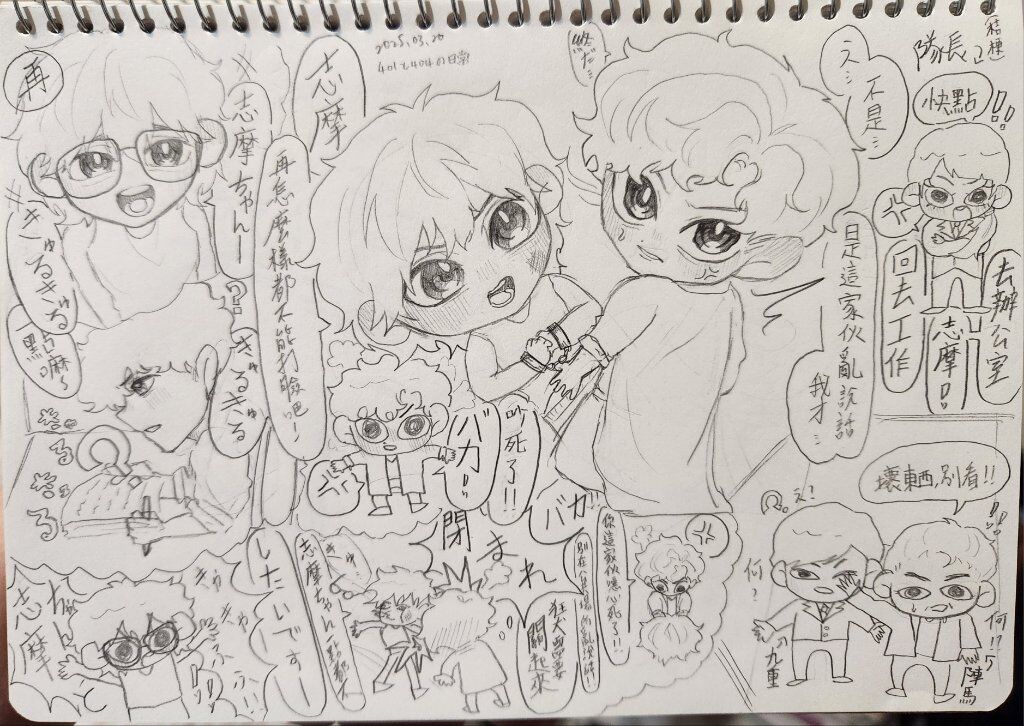 2025.03.20
401と404の日常
桔梗
隊長
快點!!
回去工作
志摩!!
去辦公室
え… 不是…
是這家伙亂說話
我才…
志摩
再怎麼樣都不能打臉吧~
再
志摩ちゃんー
きゅるきゅる
點嘛~
きゅるきゅる
きゅるきゅる
吵死了!!
バカ!!
バカ!!
閉まれ
你這家伙噁心死了!!
狂犬要
關起來
志摩ちゃん
したいですー
志摩ちゃんと
壞東西,別看!!
え?
何?
九重
何!?
陣馬